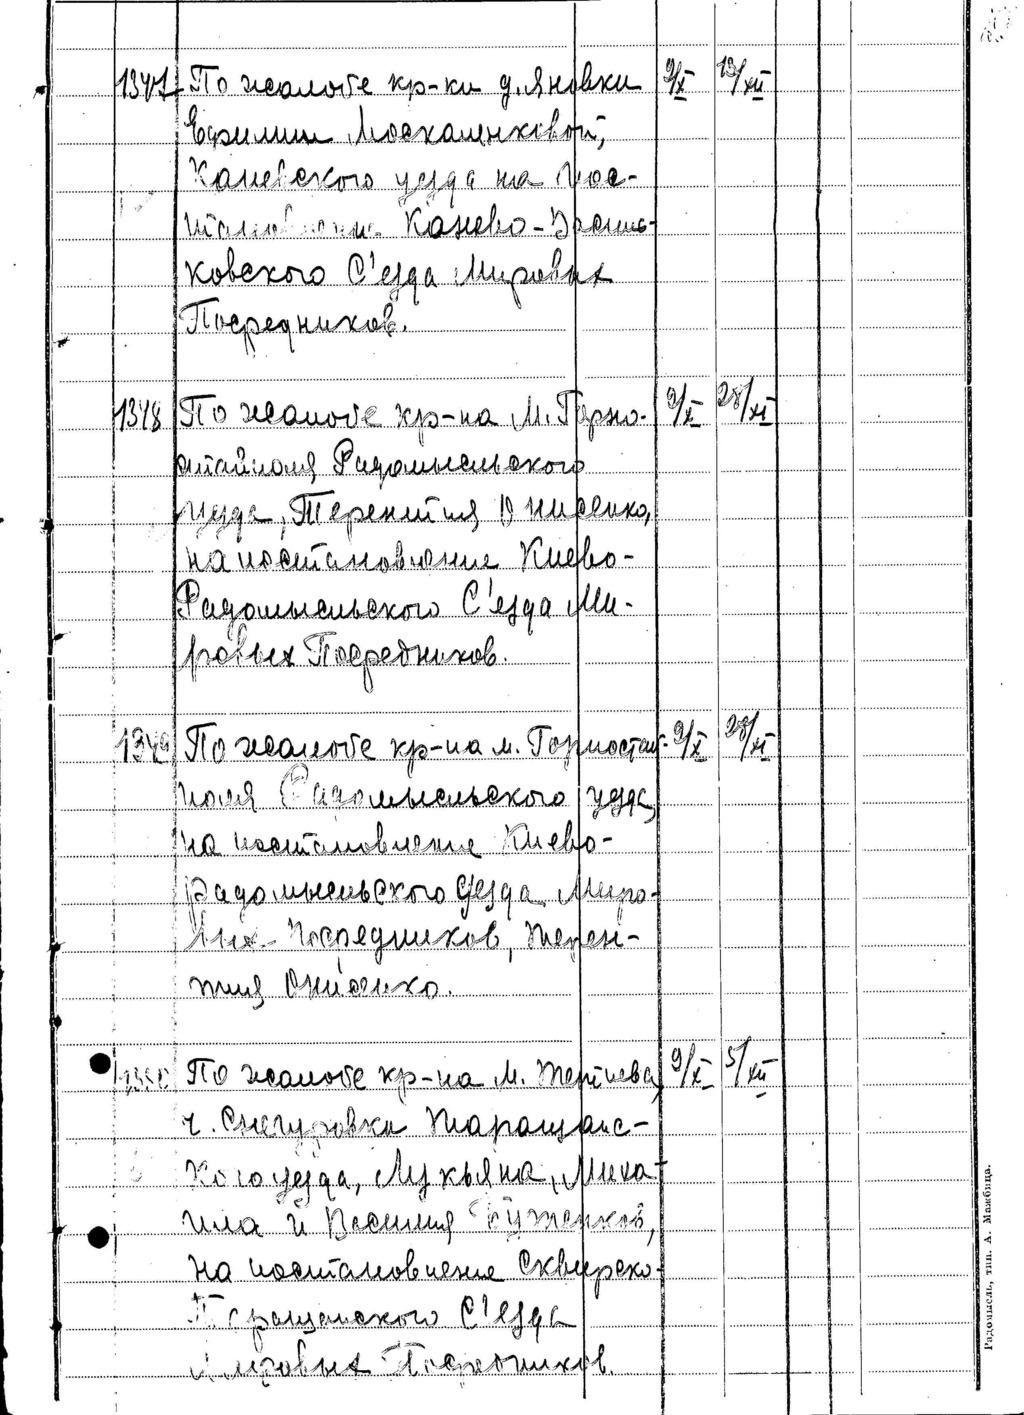 1347 По жалобе кр-ки д. Яновки 9/X 19/XII
Ефимии Москаленковой,
Каневского уезда на пос-
тановление Канево-Василь-
ковского С'езда Мировых
Посредников.
1348 По жалобе кр-на М. Горно- 9/X 28/XI
стайполя Радомысльского
уезда, Терентия Онисенко,
на постановление Киево-
Радомысльского С'езда Ми-
ровых Посредников.
1349 По жалобе кр-на м. Горностай- 9/X 28/XI
поля Радомысльского уезда
на постановление Киево-
Радомысльского С'езда Миро-
вых Посредников, Терен-
тия Онисенко.
1350 По жалобе кр-на М. 9/X 5/XII
ч. Снегуровка Таращанс-
кого уезда, Лукьяна, Миха-
ила и Василия
на постановление Сквирско-
Таращанского С'езда
Мировых Посредников.
Радомысль, тип. А. Можбица.